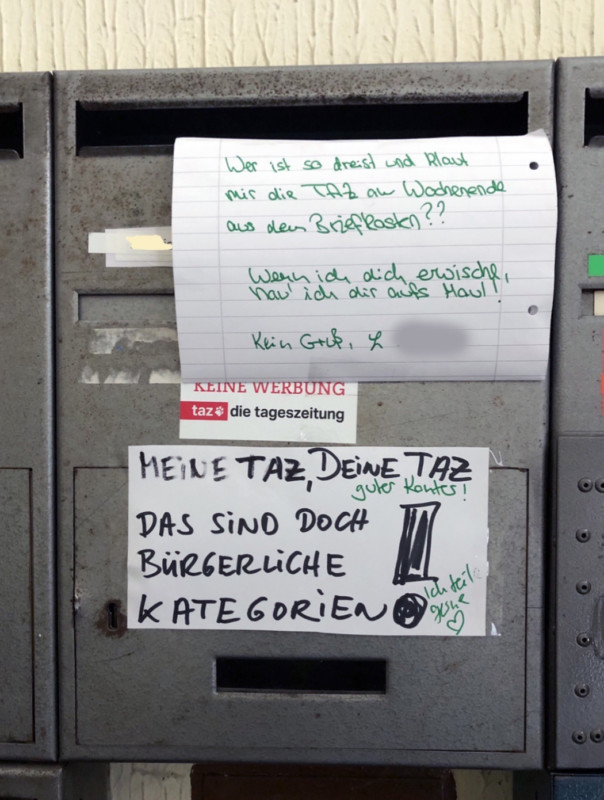 Wer ist so dreist und klaut
mir die TAZ am Wochenende
aus dem Briefkasten??
Wenn ich dich erwische,
hau' ich dir aufs Maul!
Kein Gruß, L
KEINE WERBUNG
taz die tageszeitung
MEINE TAZ, DEINE TAZ
guter Konter!
DAS SIND DOCH
BÜRGERLICHE
KATEGORIEN!
Ich teile
gerne